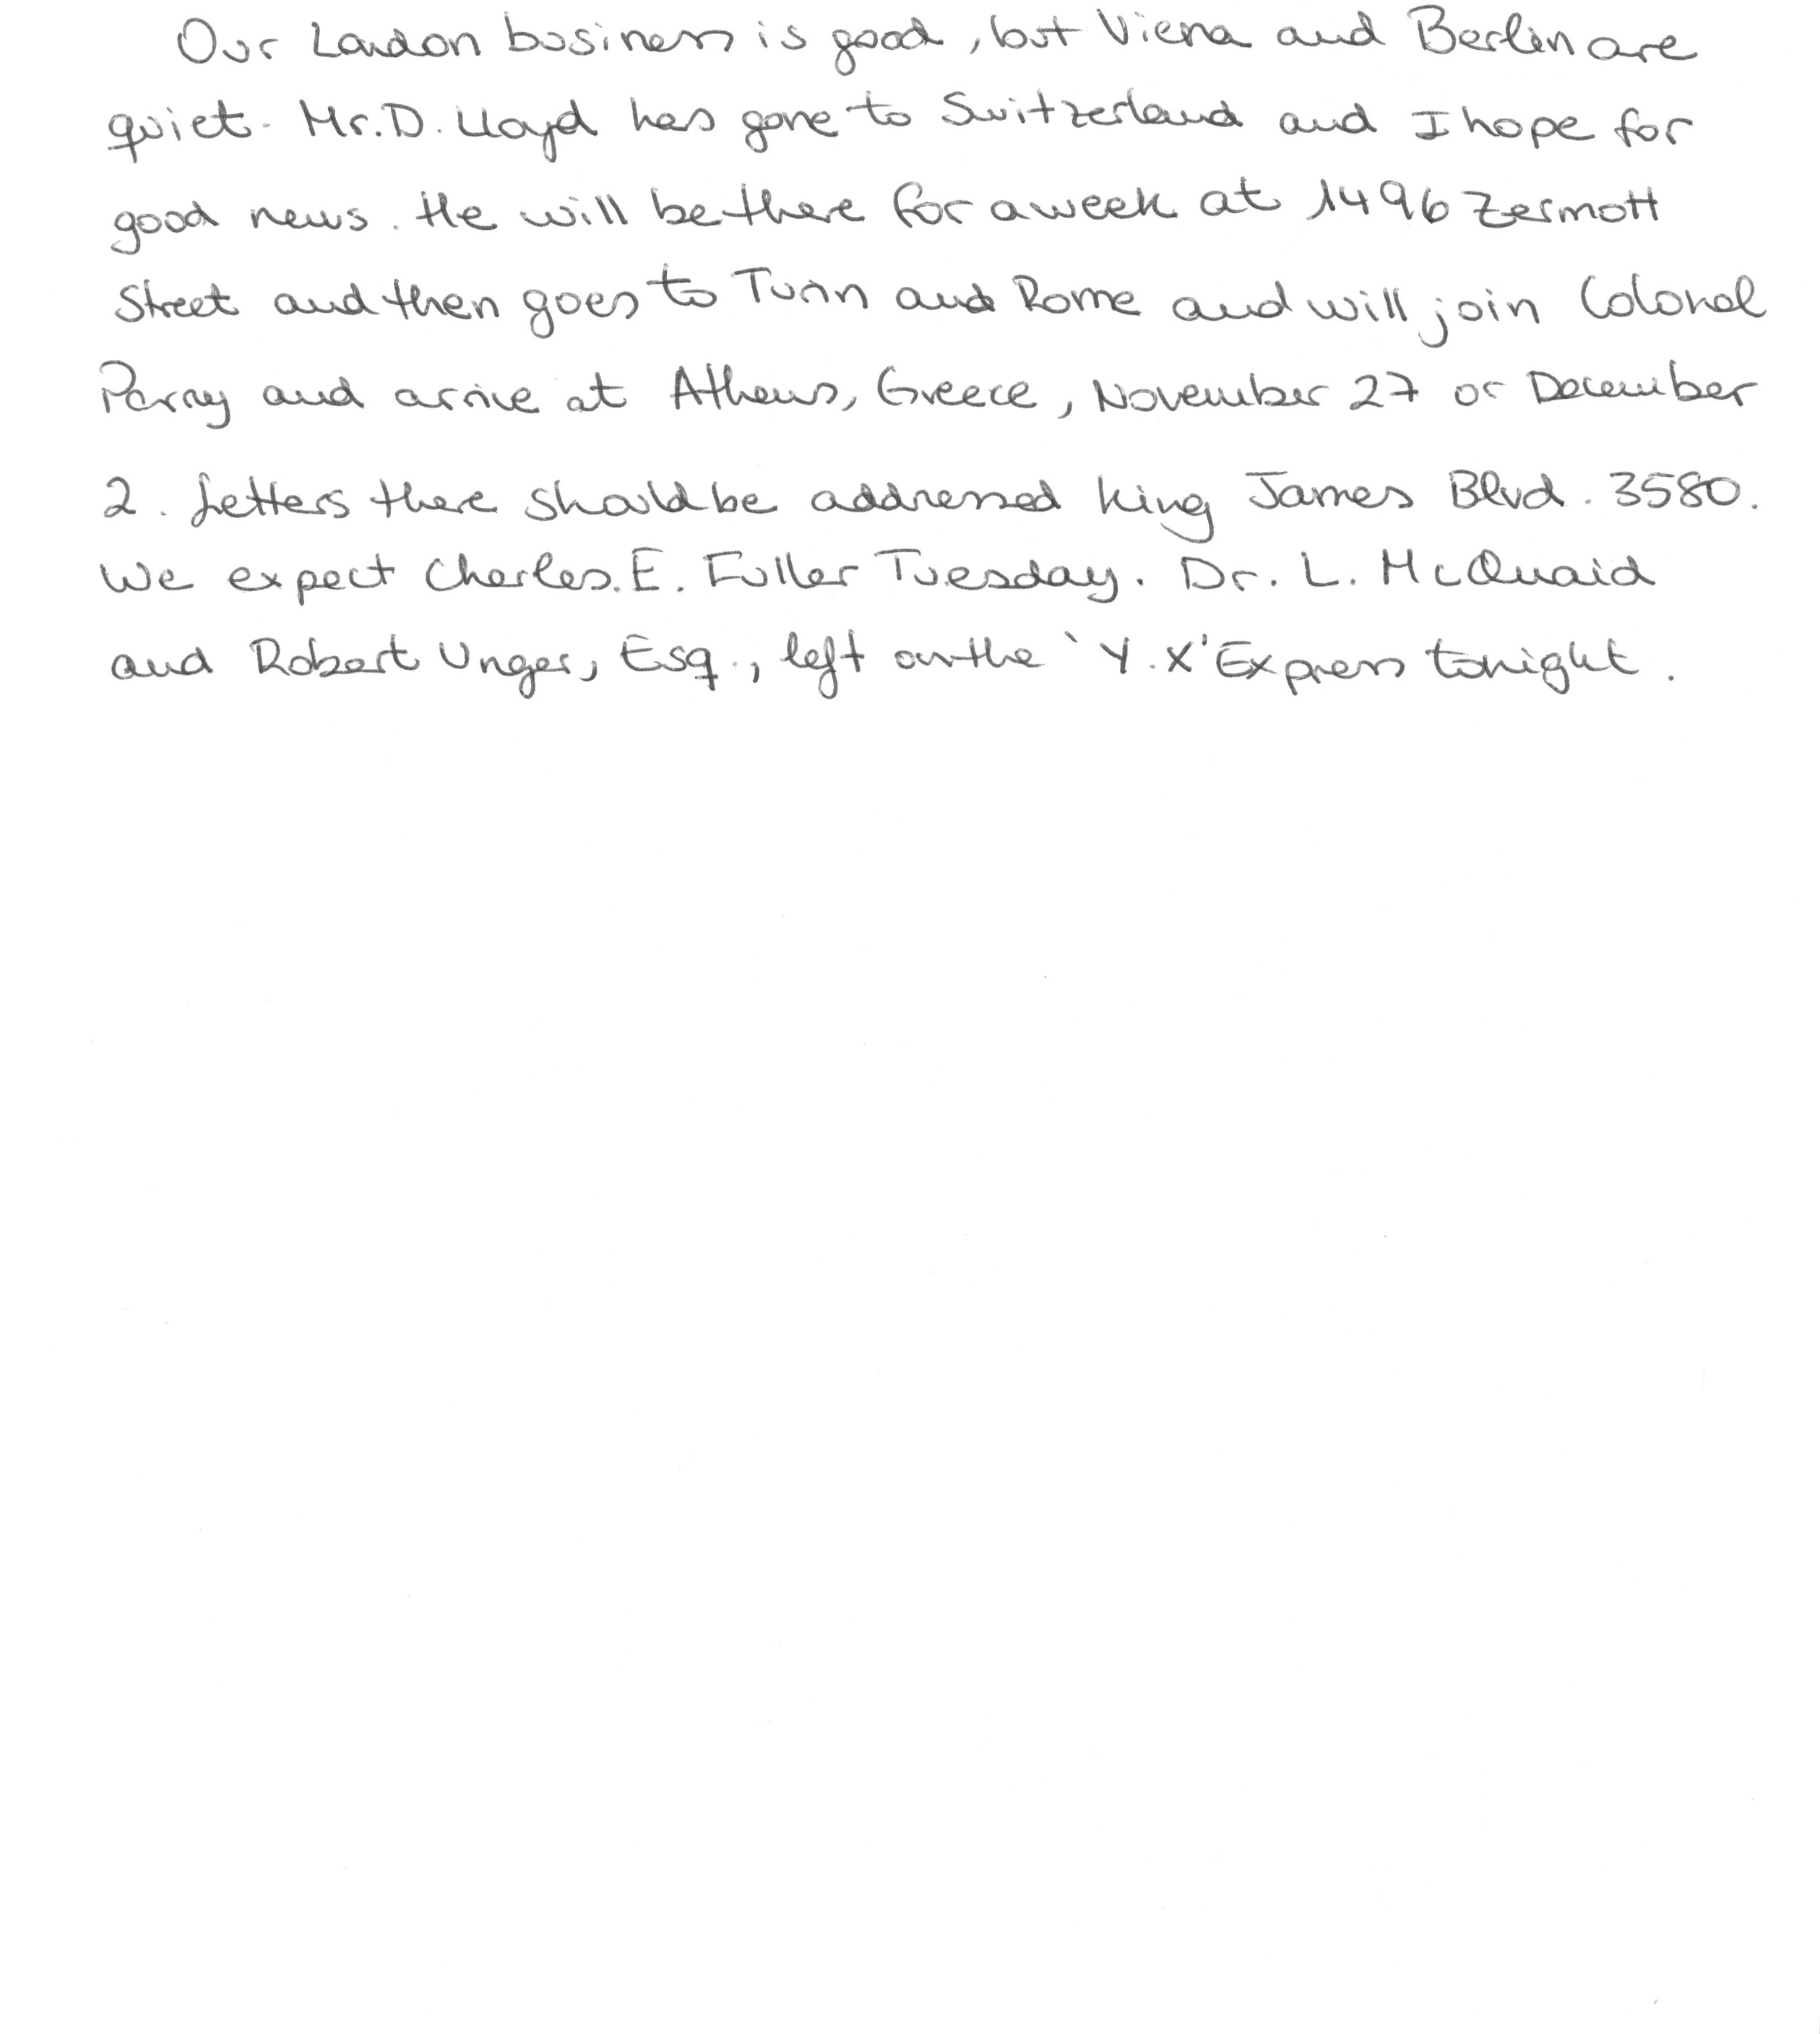 Our London business is good, but Viena and Berlin are
quiet. Mr. D. Lloyd has gone to Switzerland and I hope for
good news. He will be there for a week at 1496 Zermott
Street and then goes to Turin and Rome and will join Colonel
Parry and arrive at Athens, Greece, November 27 or December
2. Letters there should be addressed King James Blvd. 3580.
We expect Charles. E. Fuller Tuesday. Dr. L. McQuaid
and Robert Unger, Esq., left on the 'Y.X' Express tonight.